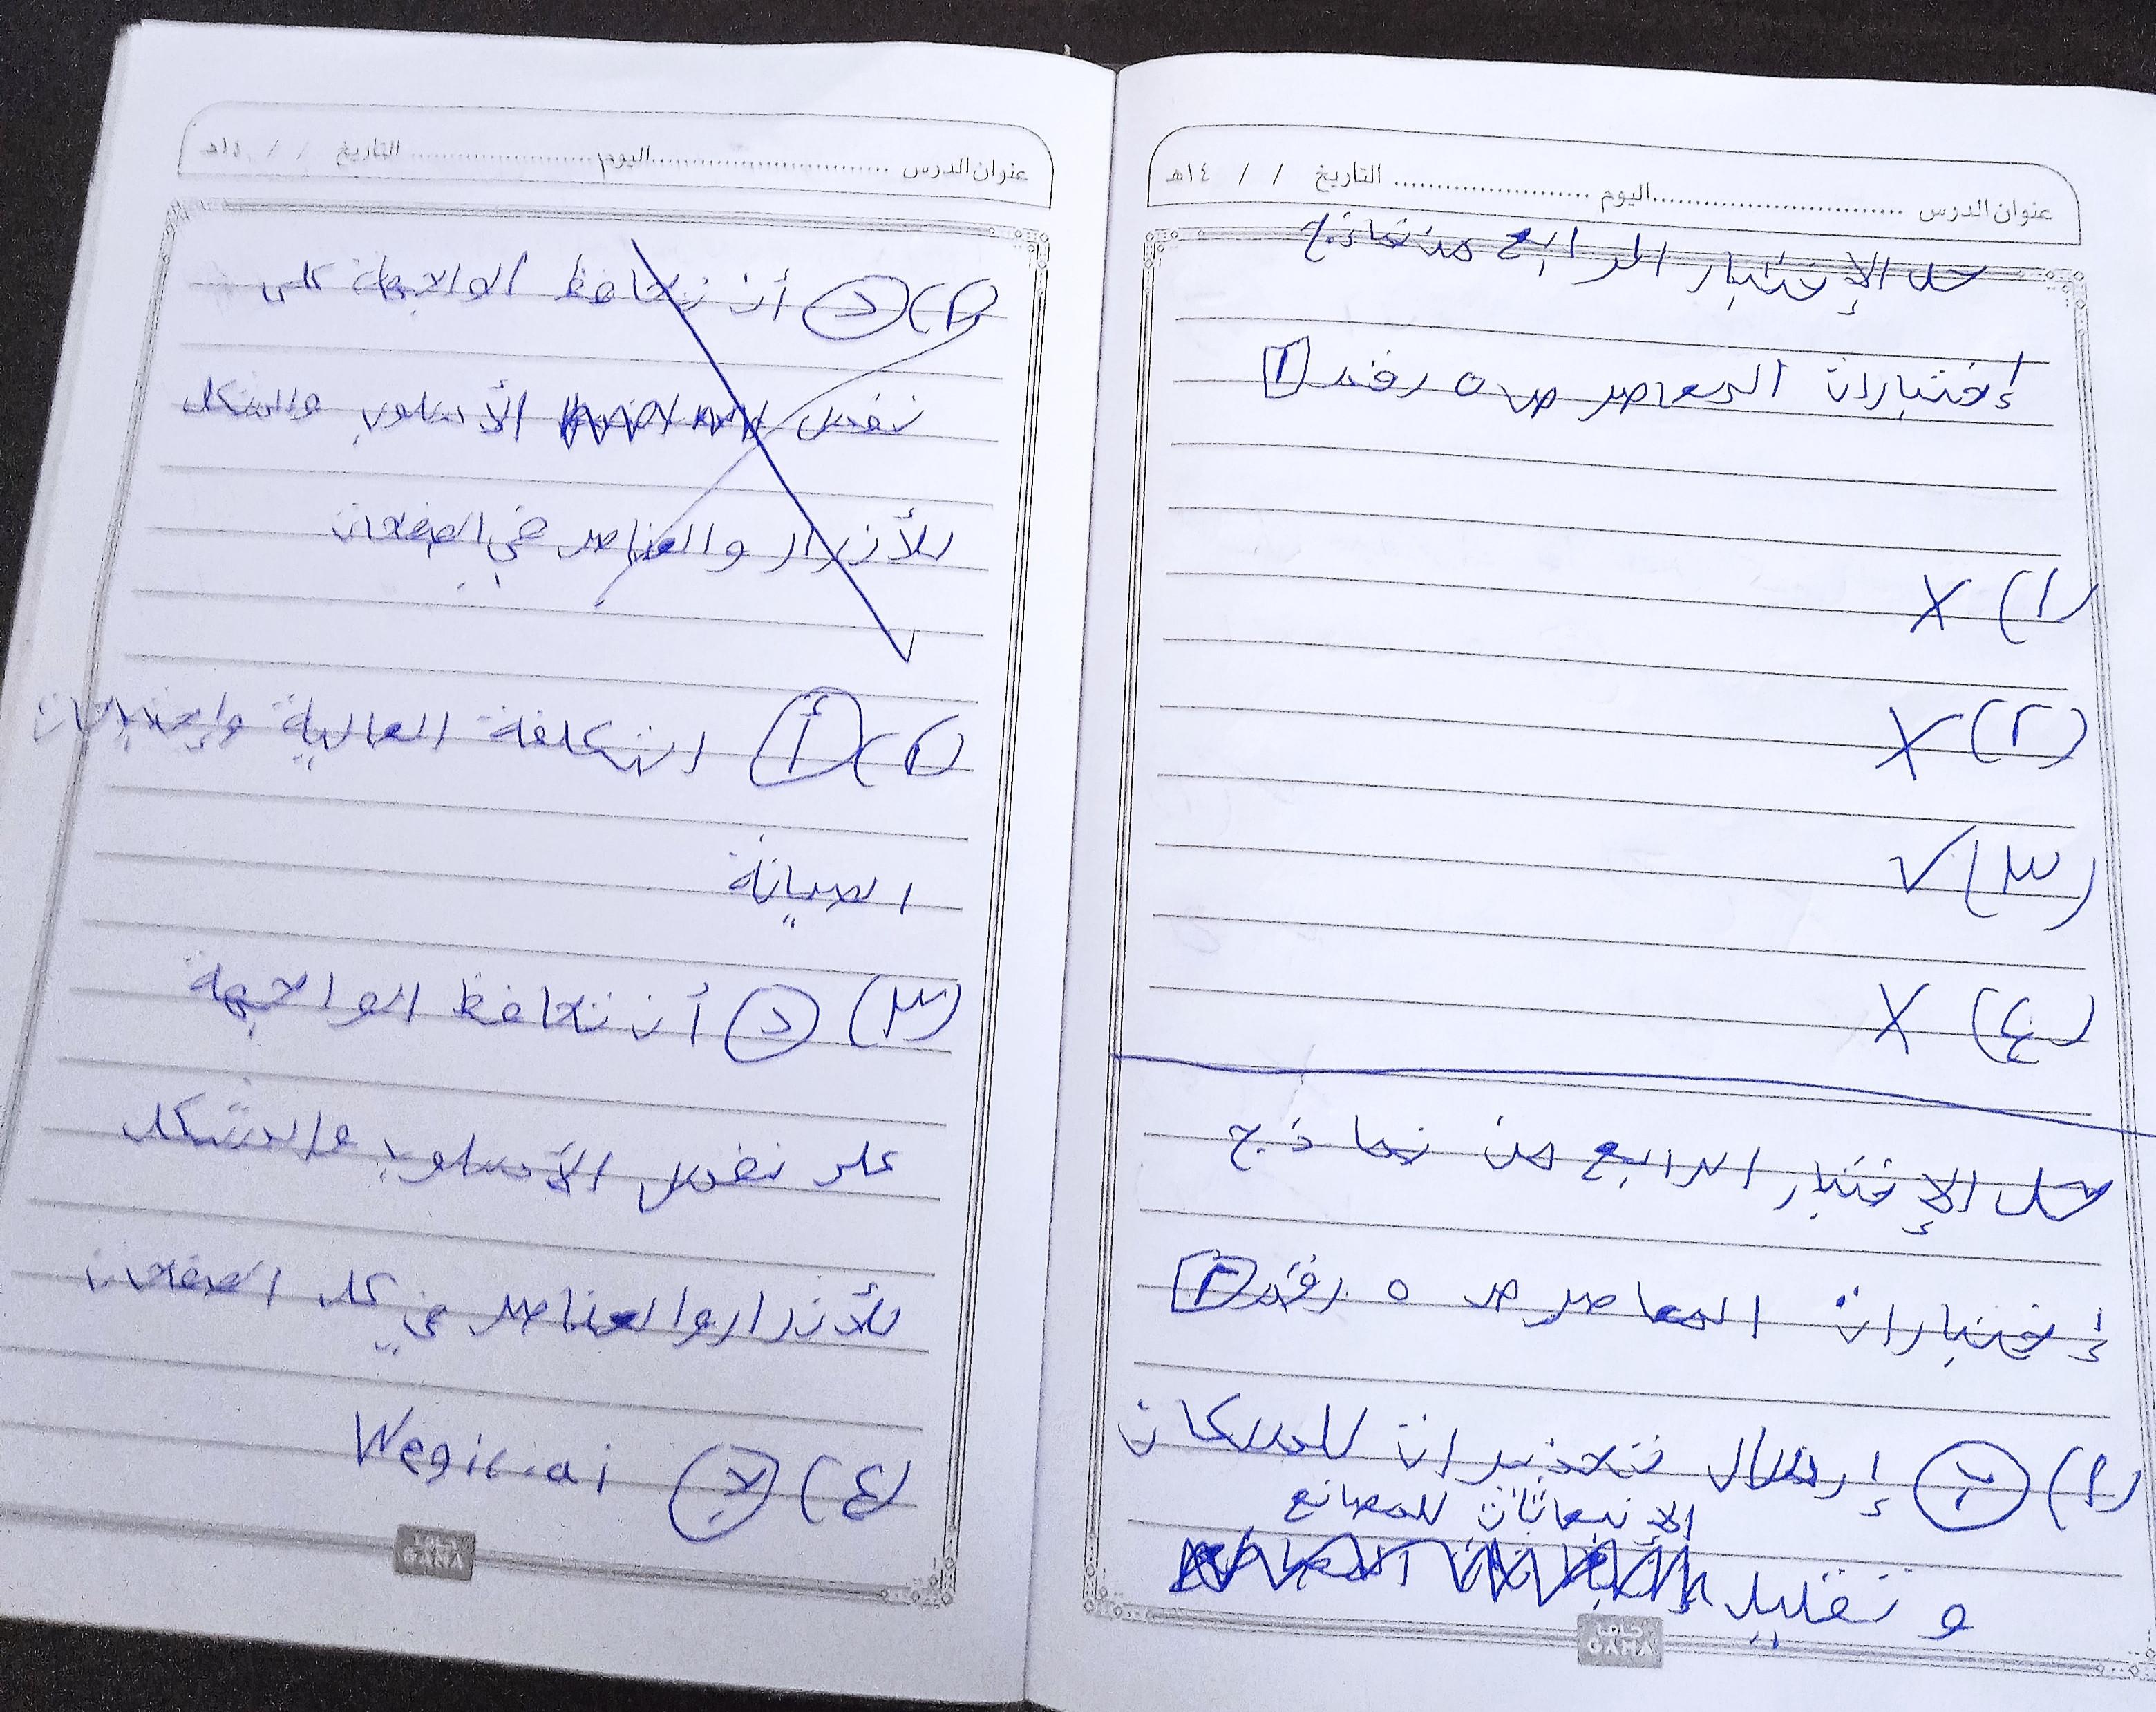 عنوان الدرس ............ اليوم ............ التاريخ / / ١٤هـ
حل الإختبار الرابع من نماذج
إختبارات المعاصر ص ٥ رقم ١
(١) X
(٢) X
(٣) ✓
(٤) X
حل الإختبار الرابع من نماذج
إختبارات المعاصر ص ٥ رقم ٢
(١) ج إرسال تحذيرات للسكان
وتقليل الانبعاثات للمصانع
جاما
GAMA
عنوان الدرس ............ اليوم ............ التاريخ / / ١٥هـ
(٢) د أن تحافظ الواجهة على
نفس الأسلوب والشكل
للأزرار والعناصر في الصفحات
(٢) أ التكلفة العالية وإحتياجات
الصيانة
(٣) د أن تحافظ الواجهة
على نفس الأسلوب والشكل
للأزرار والعناصر في كل الصفحات
(٤) ب Wegic.ai
جاما
GAMA